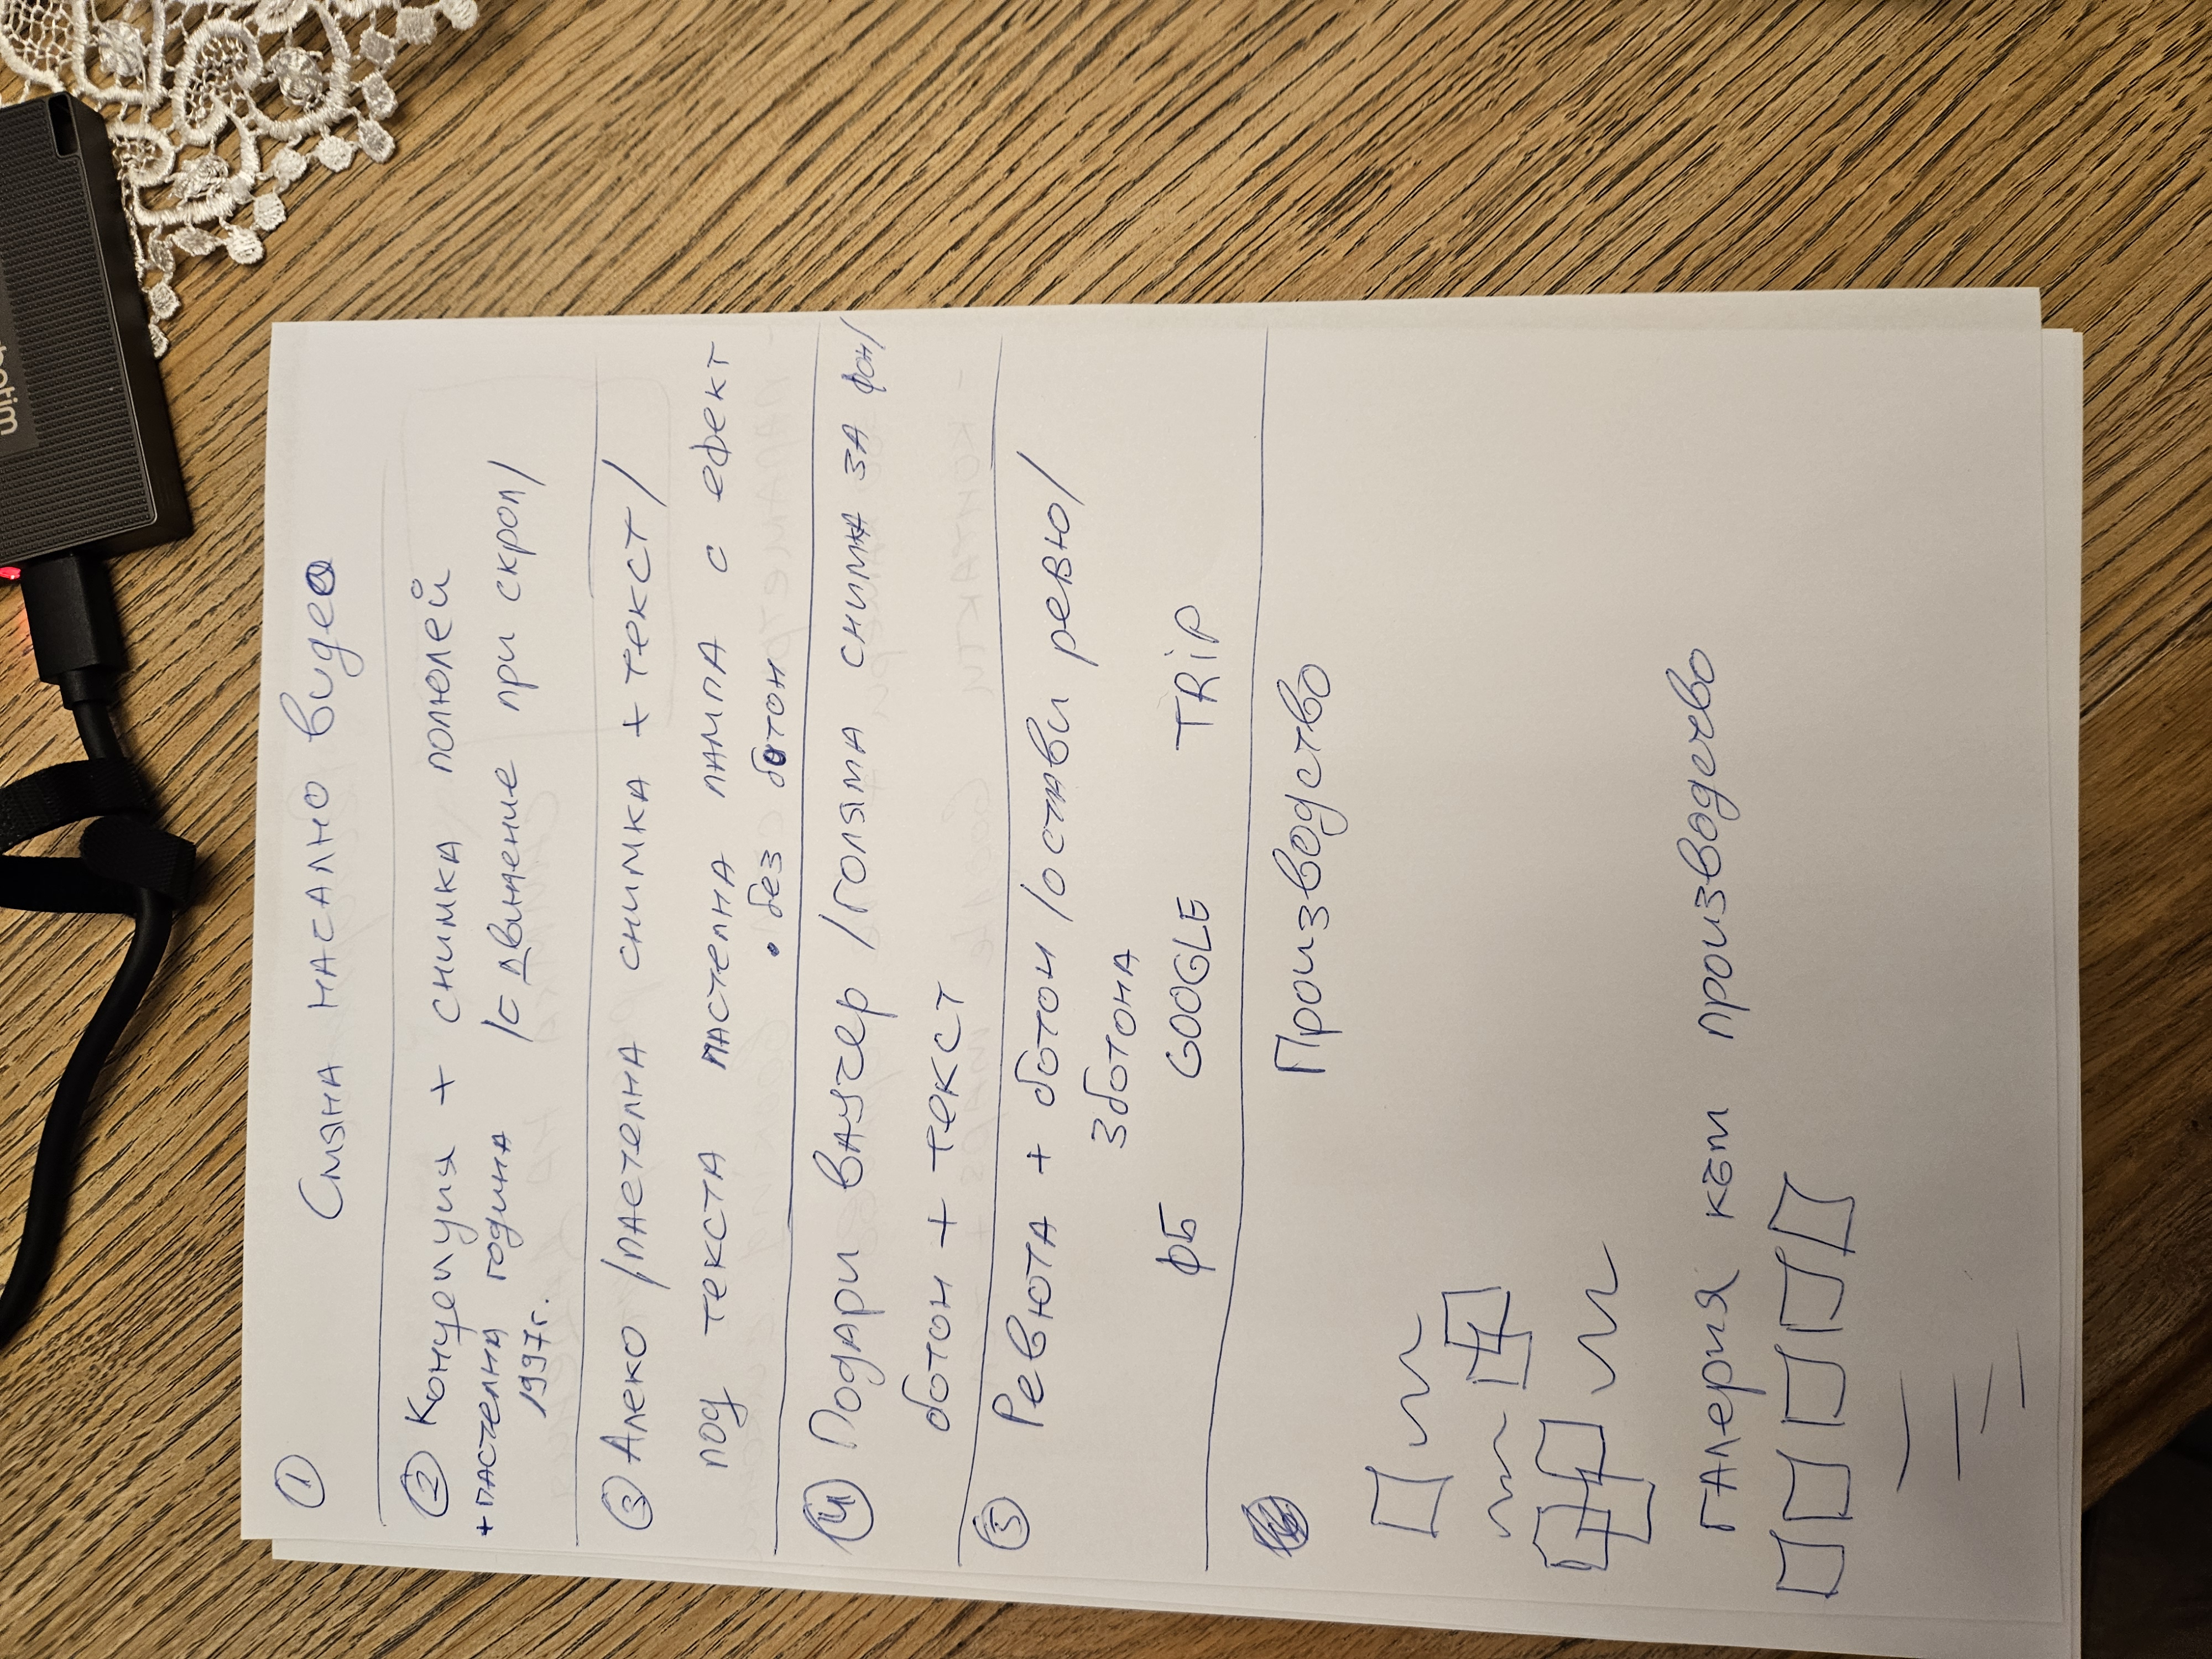 ① Смяна насално видео
② Концепция + снимка полюлей
+ пастелна година /с движение при скрол/
1997г.
③ Алеко /пастелна снимка + текст/
под текста пастелна лампа с ефект
• без бутон
④ Подари ваучер /голяма снимка за фон/
бутон + текст
⑤ Ревюта + бутон /остави ревю/
3 бутона
ФБ GOOGLE TRiP
Производство
галерия към производство